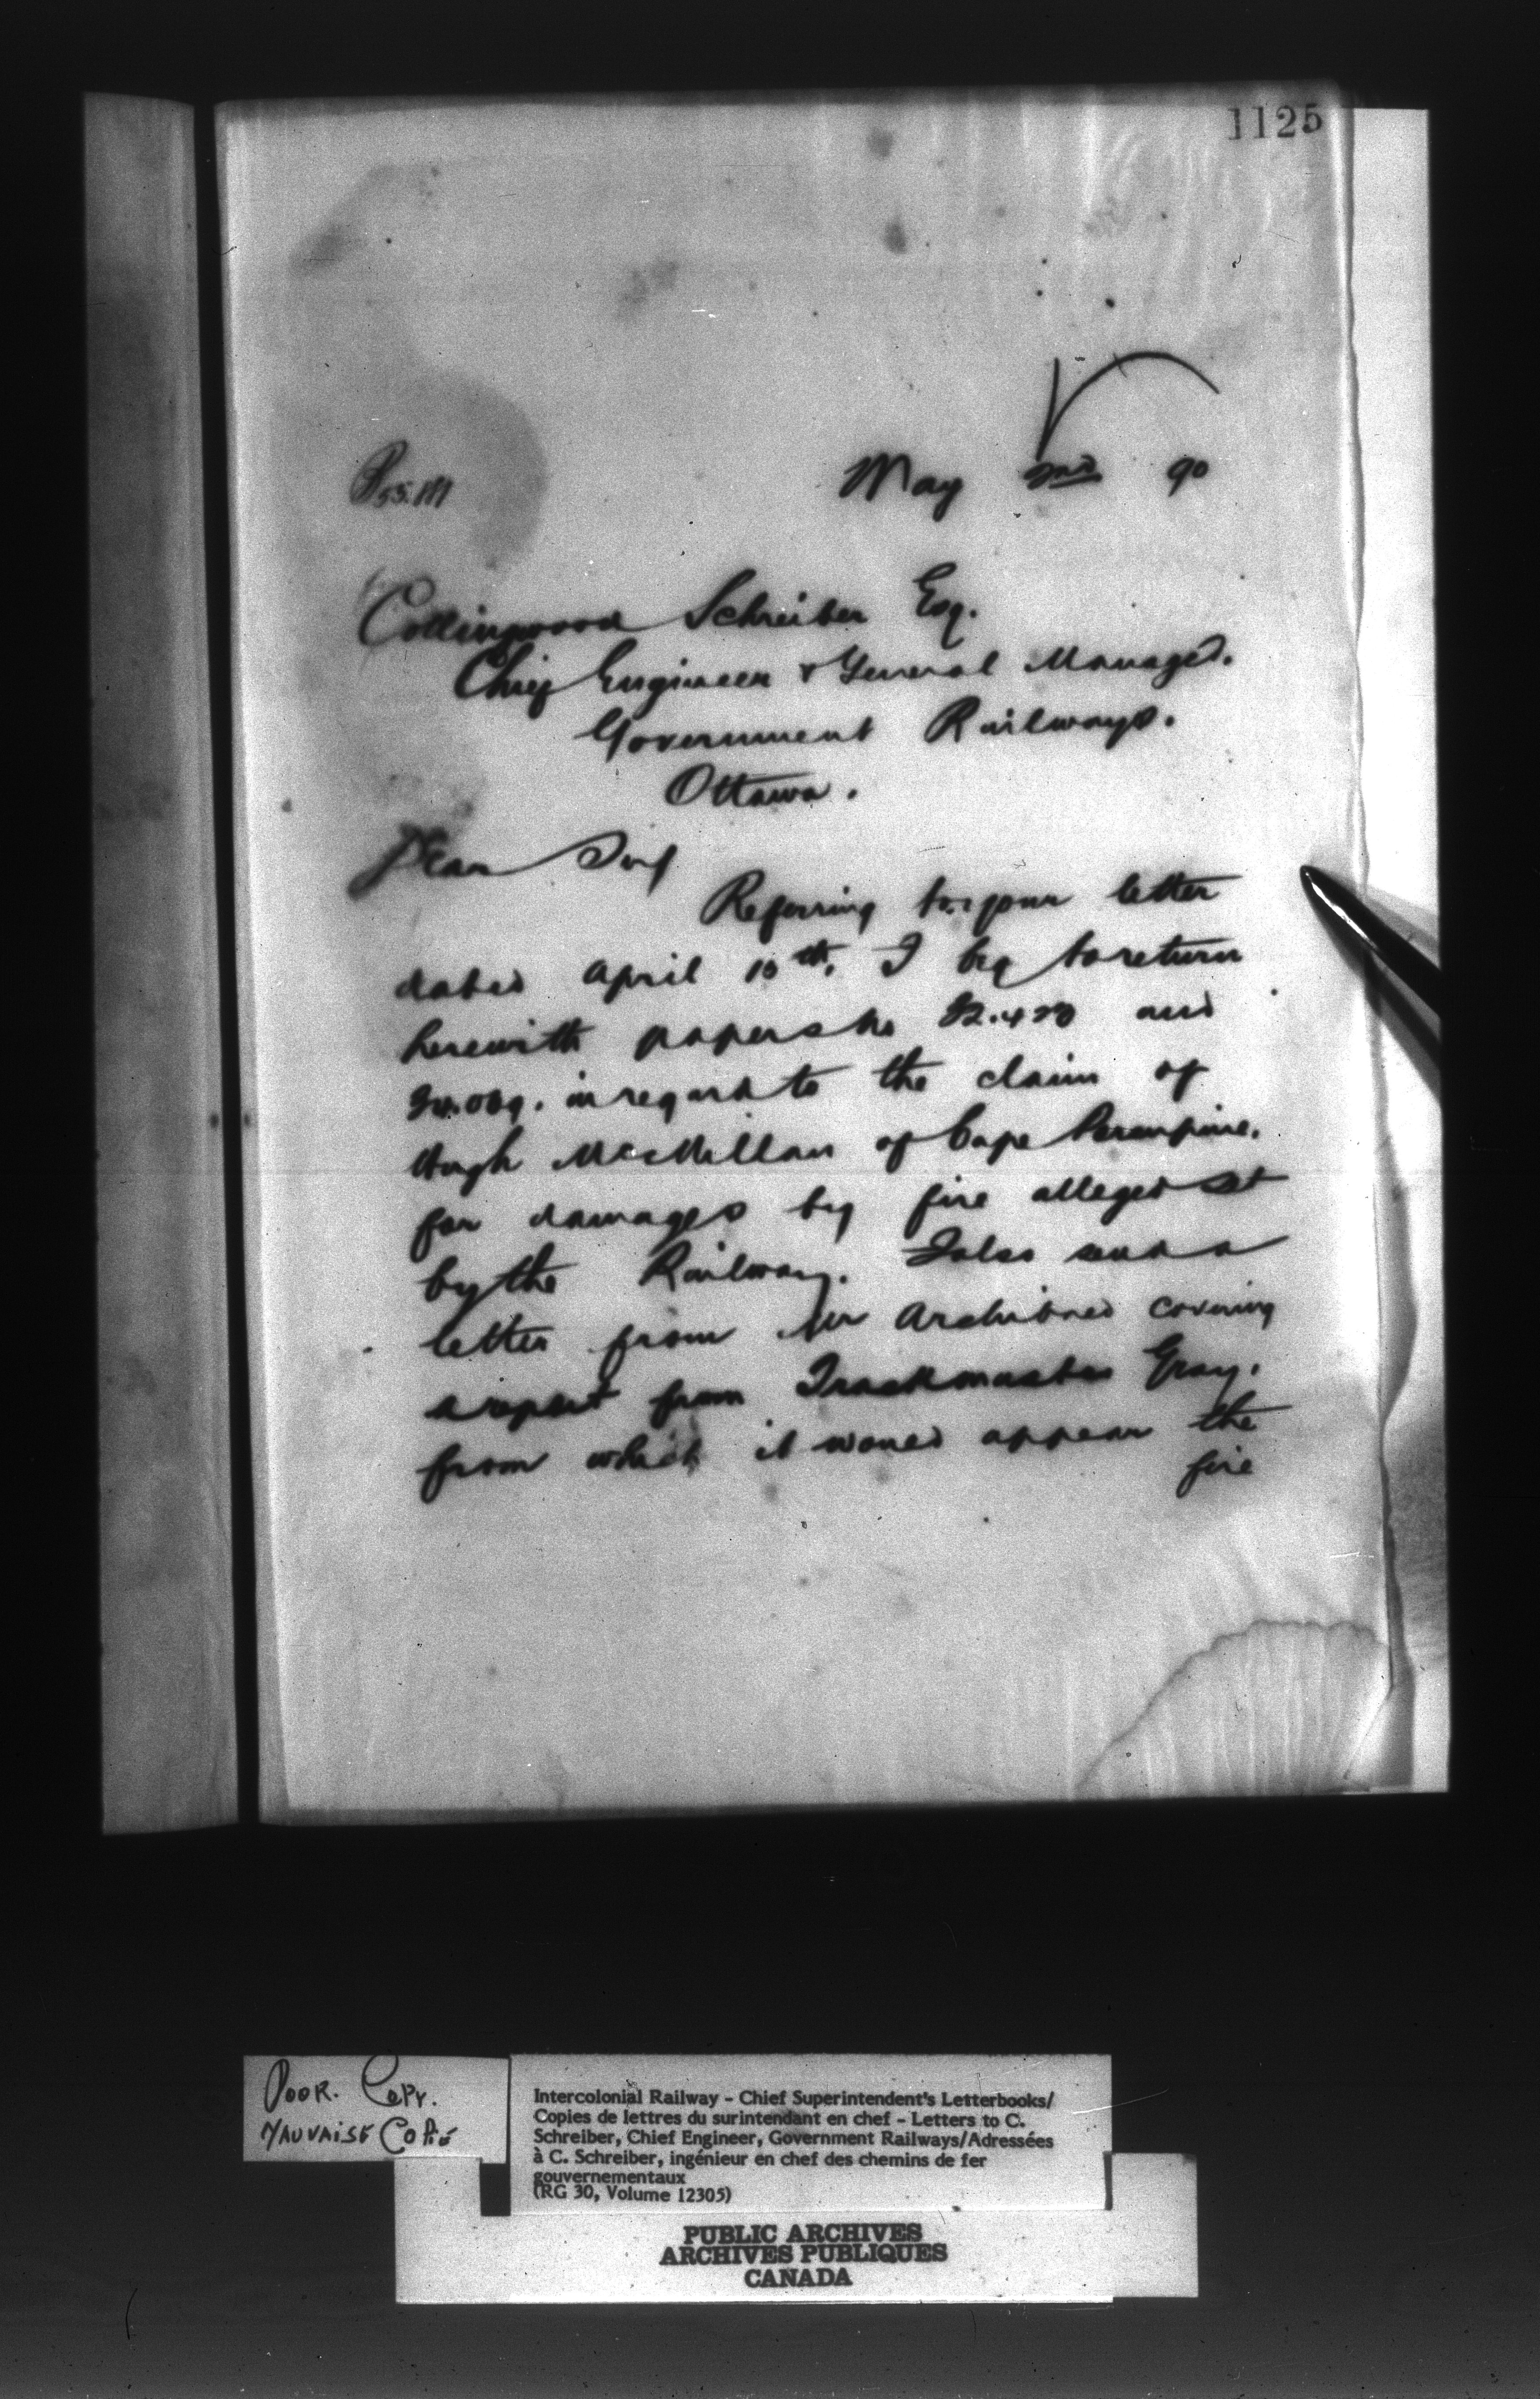 1125
May 2nd 90
Collingwood Schreiber Esq.
Chief Engineer & General Manager.
Government Railways.
Ottawa.
Dear Sir
Referring to your letter
dated April 15th. I beg to return
herewith papers No 32.420 and
in regard to the claim of
Hugh McMillan of Cape Porcupine.
for damages by fire alleged set
by the Railway. I also send a
letter from Mr Archibald covering
a report from Trackmaster Gray.
from which it would appear the
fire
POOR. COPY.
MAUVAISE COPIE
Intercolonial Railway - Chief Superintendent's Letterbooks/
Copies de lettres du surintendant en chef - Letters to C.
Schreiber, Chief Engineer, Government Railways/Adressées
à C. Schreiber, ingénieur en chef des chemins de fer
gouvernementaux
(RG 30, Volume 12305)
PUBLIC ARCHIVES
ARCHIVES PUBLIQUES
CANADA